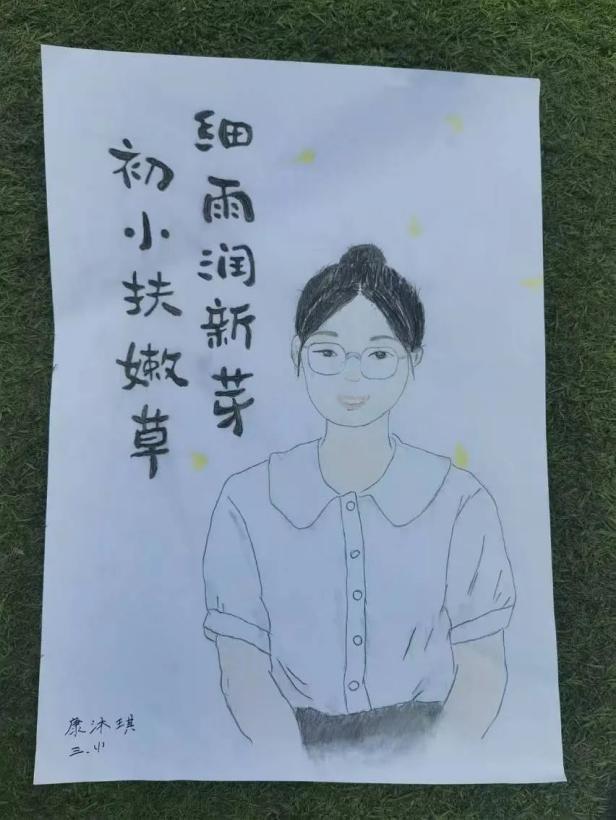 细雨润新芽
初小扶嫩草
康沐琪